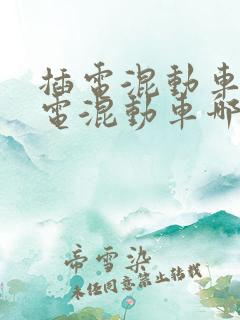 插電混動車
電混動車哪
帝雪染
未经同意禁止转载